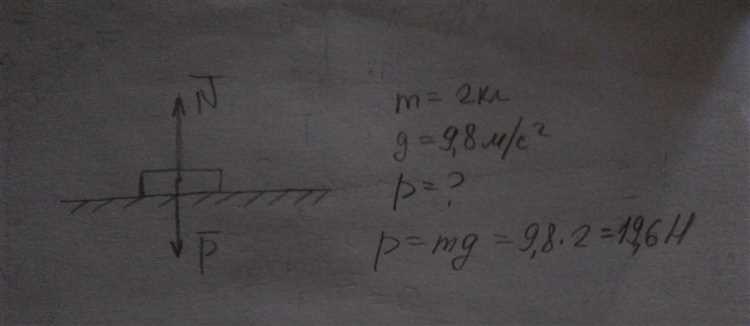 N
P
m = 2кг
g = 9,8 м/с²
p = ?
p = mg = 9,8 · 2 = 19,6 Н